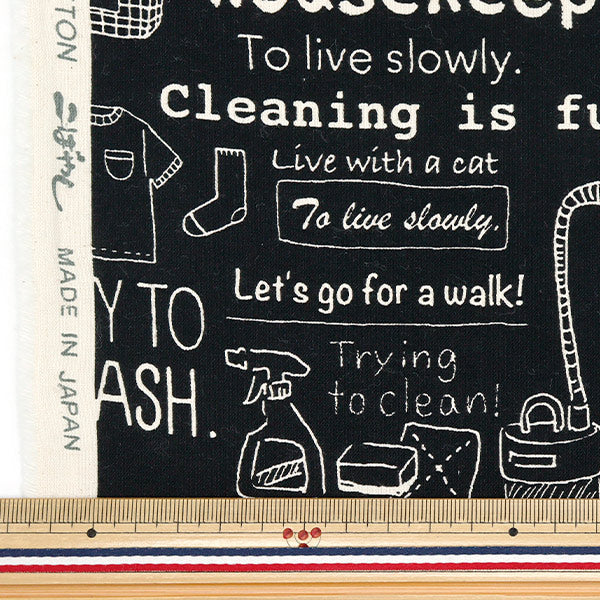 Housekeep
To live slowly.
Cleaning is fu
Live with a cat
To live slowly.
Let's go for a walk!
Y TO
ASH.
Trying
to clean!
TTON
MADE IN JAPAN